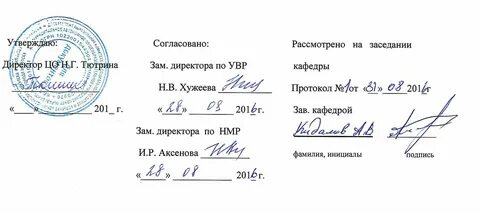 Утверждаю:
Директор ЦО Н.Г. Тютрина
«____»____________201_ г.
Согласовано:
Зам. директора по УВР
Н.В. Хужеева
«28» 03 2016 г.
Зам. директора по НМР
И.Р. Аксенова
«28» 08 2016 г.
Рассмотрено на заседании
кафедры
Протокол №1от «31» 08 2016г
Зав. кафедрой
Кидалов А.В
фамилия, инициалы подпись